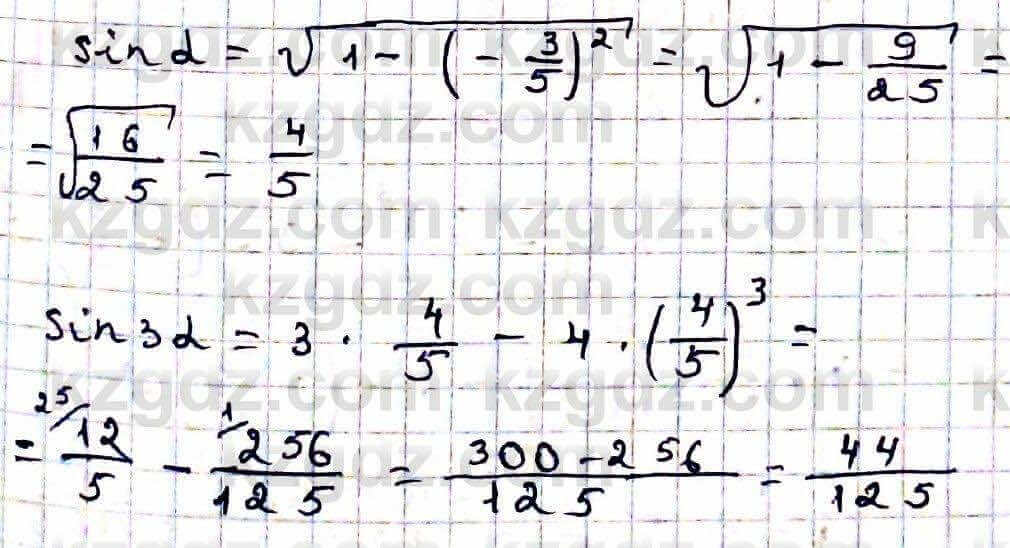 sin α = √(1 - (-3/5)²) = √(1 - 9/25) =
= √(16/25) = 4/5
sin 3α = 3 · 4/5 - 4 · (4/5)³ =
= ²⁵/12/5 - ¹/256/125 = (300-256)/125 = 44/125
kzgdz.com
kzgdz.com kzgdz.com k
kzgdz.com
kzgdz.com kzgdz.com k
kzgdz.com
kzgdz.com kzgdz.com k